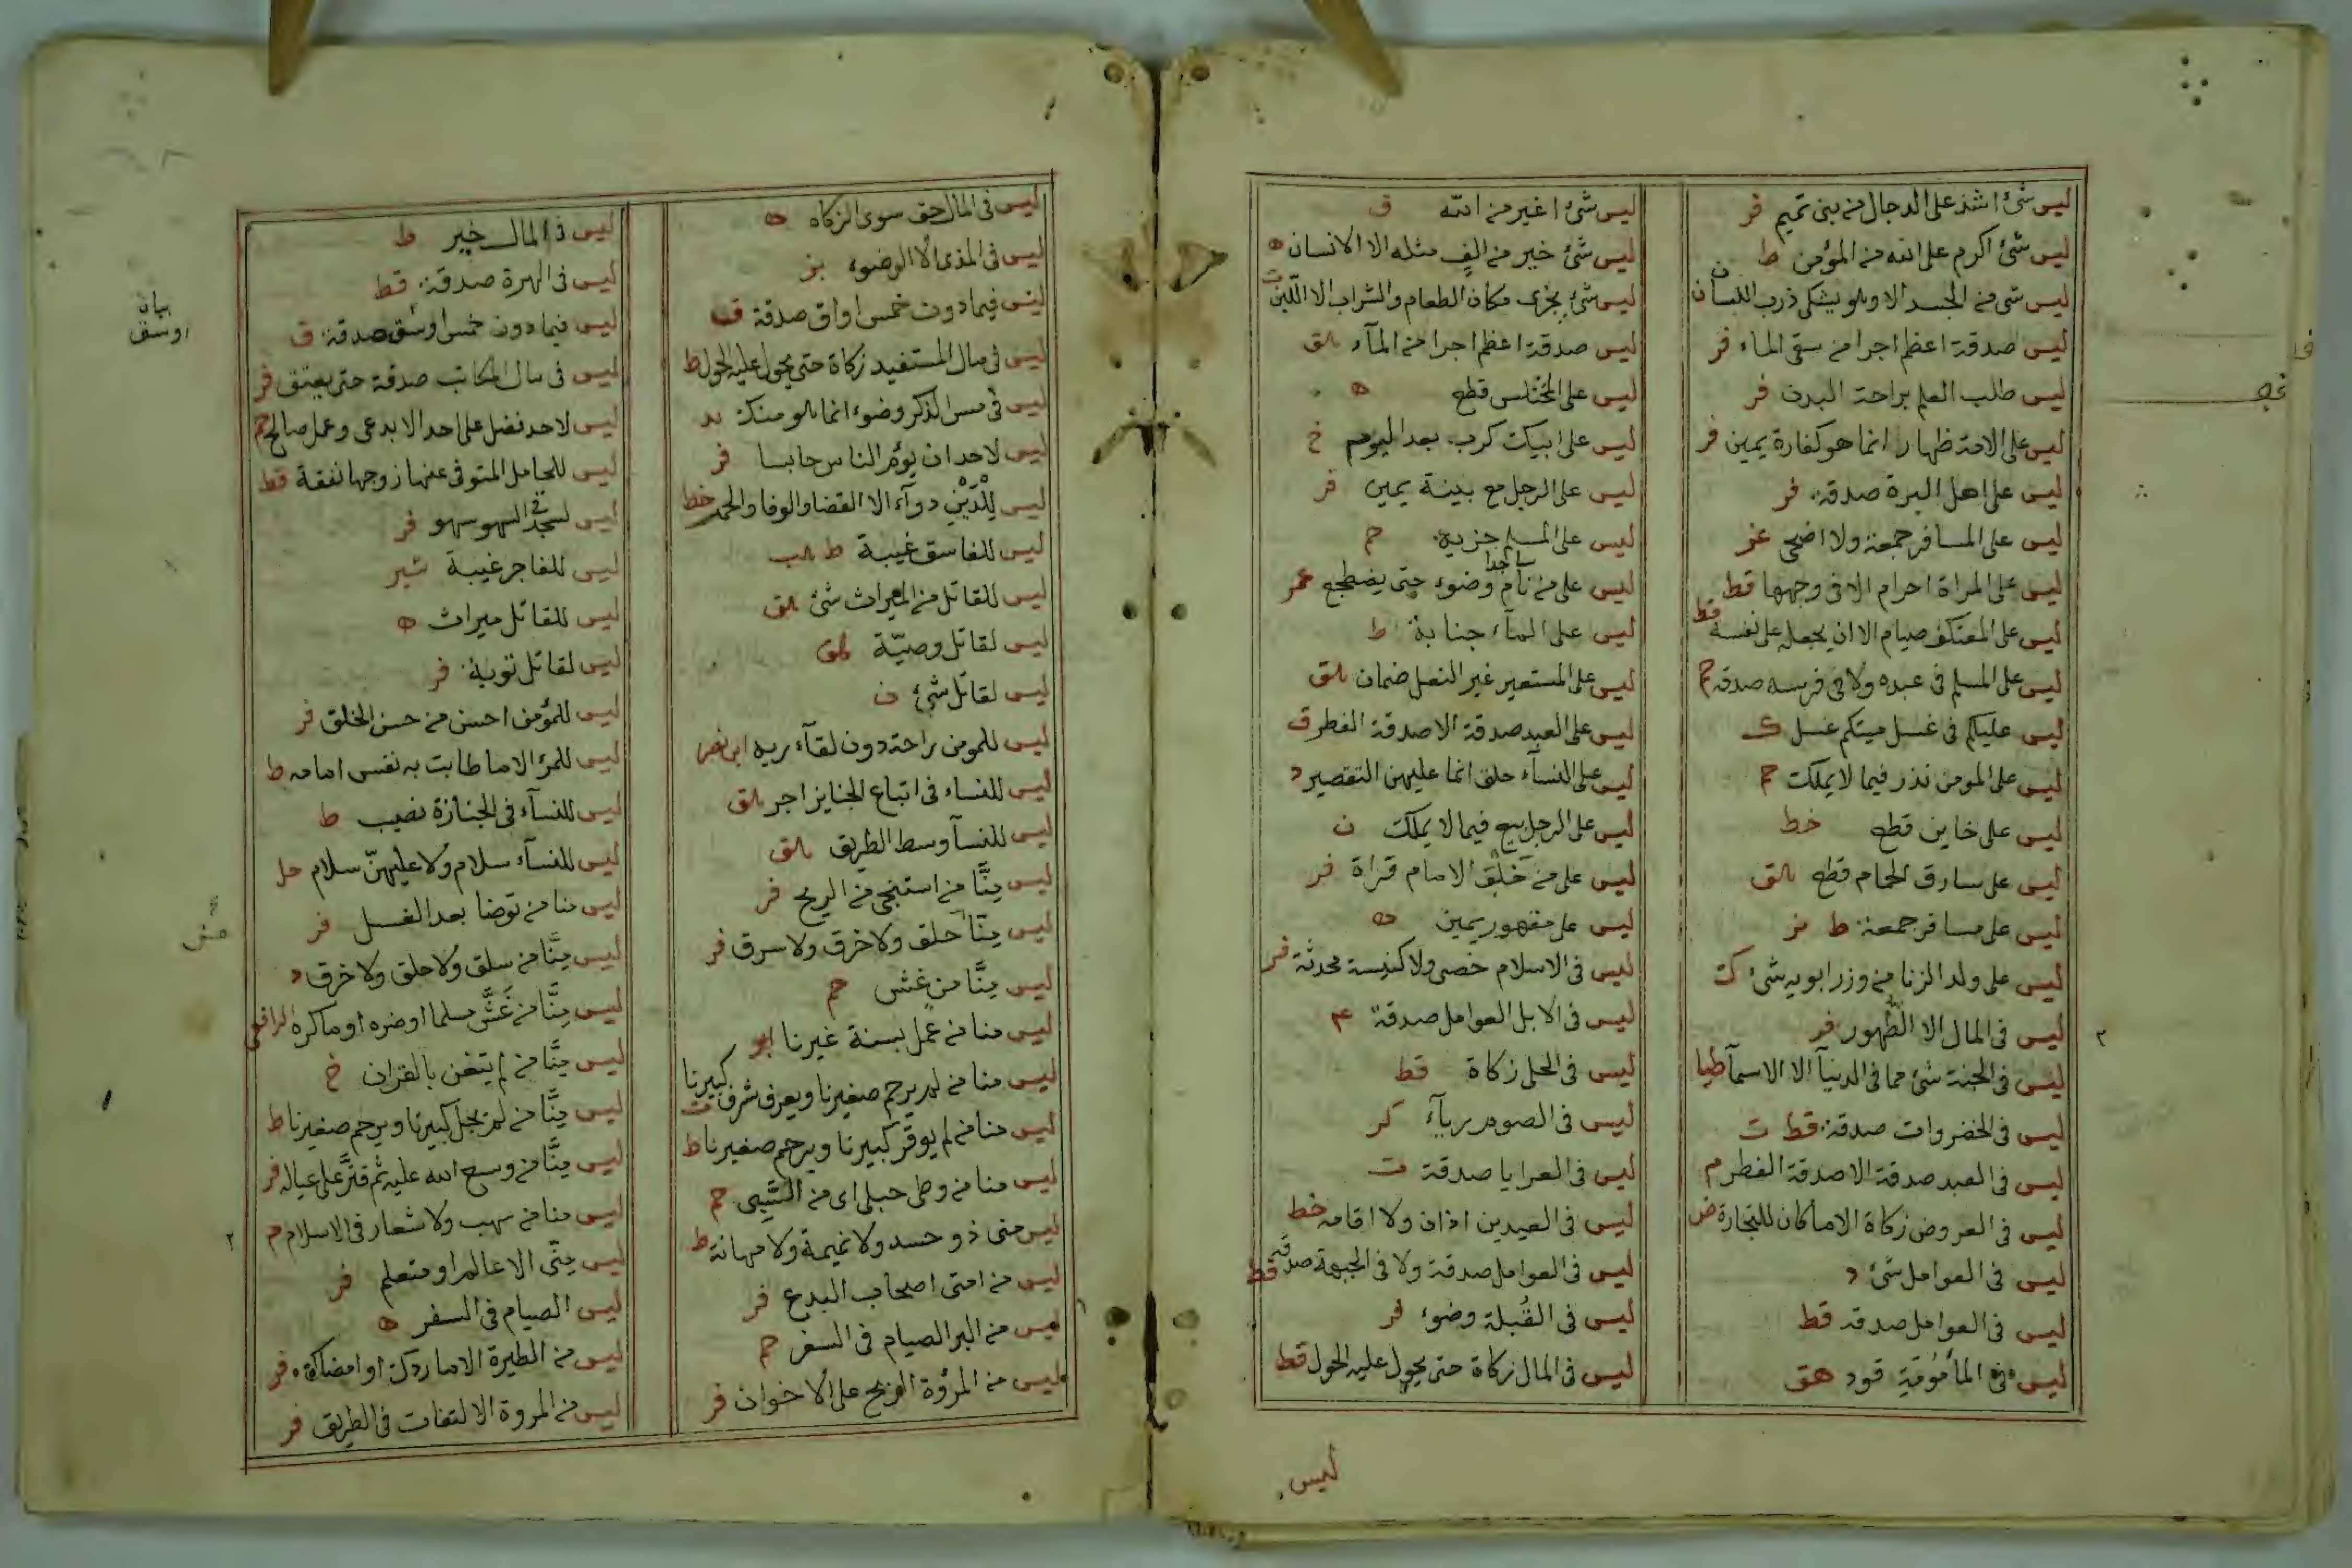 ليس شئ اشد على الدجال من بنى تميم فر
ليس شئ اكرم على الله من المؤمن ط
ليس شئ من الجسد الا وهو يشكى ذرب اللسان
ليس صدقة اعظم اجرا من سقى الماء فر
ليس طلب العلم براحة البدن فر
ليس على الامة ظهار انما هو كفارة يمين فر
ليس على اهل البرة صدقة فر
ليس على المسافر جمعة ولا اضحى
ليس على المراة احرام الا فى وجهها قط
ليس على المعتكف صيام الا ان يجعل على نفسه قط
ليس على المسلم فى عبده ولا فى فرسه صدقة حم
ليس عليكم فى غسل ميتكم غسل ك
ليس على المومن نذر فيما لا يملك حم
ليس على خاين قطع خط
ليس على سارق الحمام قطع هق
ليس على مسافر جمعة ط
ليس على ولد الزنا من وزر ابويه شئ ك
ليس فى المال الا الطهور فر
ليس فى الجنة شئ مما فى الدنيا الا الاسمآ طيا
ليس فى الخضروات صدقة قط ت
ليس فى العبد صدقة الا صدقة الفطر م
ليس فى العروض زكاة الا ما كان للتجارة ض
ليس فى العوامل شئ د
ليس فى العوامل صدقة قط
ليس فى المأمومة قود هق
ليس شئ اغير من الله ق
ليس شئ خير من الف مثله الا الانسان
ليس شئ يجزى مكان الطعام والشراب الا اللبن ت
ليس صدقة اعظم اجرا من المآء هق
ليس على المختلس قطع ه
ليس على ابيك كرب بعد اليوم خ
ليس على الرجل مع بينة يمين فر
ليس على المسلم جزية حم
ليس على من نام ساجدا وضوء حتى يضطجع عم
ليس على المآء جنابة ط
ليس على المستعير غير المغل ضمان هق
ليس على العبد صدقة الا صدقة الفطر ق
ليس على النسآء حلق انما عليهن التقصير د
ليس على الرجل بيع فيما لا يملك ن
ليس على من خلف الامام قراة فر
ليس على مقهور يمين
ليس فى الاسلام خصى ولا كنيسة محدثة فر
ليس فى الابل العوامل صدقة
ليس فى الحلى زكاة قط
ليس فى الصوم ريآء كر
ليس فى العرايا صدقة ت
ليس فى العيدين اذان ولا اقامه خط
ليس فى العوامل صدقة ولا فى الجبهة صدقة قط
ليس فى القبلة وضوء فر
ليس فى المال زكاة حتى يحول عليه الحول قط
ليس
ليس فى المال حق سوى الزكاه ه
ليس فى المذى الا الوضوء بز
ليس فيما دون خمس اواق صدقة ق
ليس فى مال المستفيد زكاة حتى يحول عليه الحول ط
ليس فى مس الذكر وضوء انما هو منك
ليس لاحد ان يؤم الناس جالسا فر
ليس للدين دوآء الا القضا والوفا والحمد خط
ليس للفاسق غيبة ط هب
ليس للقاتل من الميراث شئ هق
ليس لقاتل وصية هق
ليس لقاتل شئ ن
ليس للمومن راحة دون لقآء ربه ابن نصر
ليس للنساء فى اتباع الجنايز اجر هق
ليس للنسآ وسط الطريق هق
ليس منا من استنجى من الريح فر
ليس منا حلق ولا خرق ولا سرق فر
ليس منا من غش حم
ليس منا من عمل بسنة غيرنا فر
ليس منا من لم يرحم صغيرنا ويعرف شرف كبيرنا ت
ليس منا من لم يوقر كبيرنا ويرحم صغيرنا ط
ليس منا من وطى حبلى اى من السبى حم
ليس منى ذو حسد ولا نميمة ولا مهانة ط
ليس من امتى اصحاب البدع فر
ليس من البر الصيام فى السفر حم
ليس من المروة الربح على الاخوان فر
ليس فى المال خير ط
ليس فى الهرة صدقة قط
ليس فيما دون خمس اوسق صدقة ق
ليس فى مال المكاتب صدقة حتى يعتق فر
ليس لاحد فضل على احد الا بدين وعمل صالح
ليس للحامل المتوفى عنها زوجها نفقة قط
ليس فى سجدة السهو سهو فر
ليس للفاجر غيبة شير
ليس للقاتل ميراث ه
ليس لقاتل توبة فر
ليس للمؤمن احسن من حسن الخلق فر
ليس للمرء الا ما طابت به نفس امامه ط
ليس للنسآء فى الجنازة نصيب ط
ليس للنسآء سلام ولا عليهن سلام حل
ليس منا من توضا بعد الغسل فر
ليس منا من سلق ولا حلق ولا خرق د
ليس منا من غش مسلما او ضره او ماكره الرافعى
ليس منا من لم يتغن بالقران خ
ليس منا من لم يجل كبيرنا ويرحم صغيرنا ط
ليس منا من وسع الله عليه ثم قتر على عياله فر
ليس منا من نهب ولا شغار فى الاسلام
ليس منى الا عالم او متعلم فر
ليس الصيام فى السفر ه
ليس من الطيرة الا ما ردك او امضاك فر
ليس من المروة الالتفات فى الطريق فر
بيان
اوسق